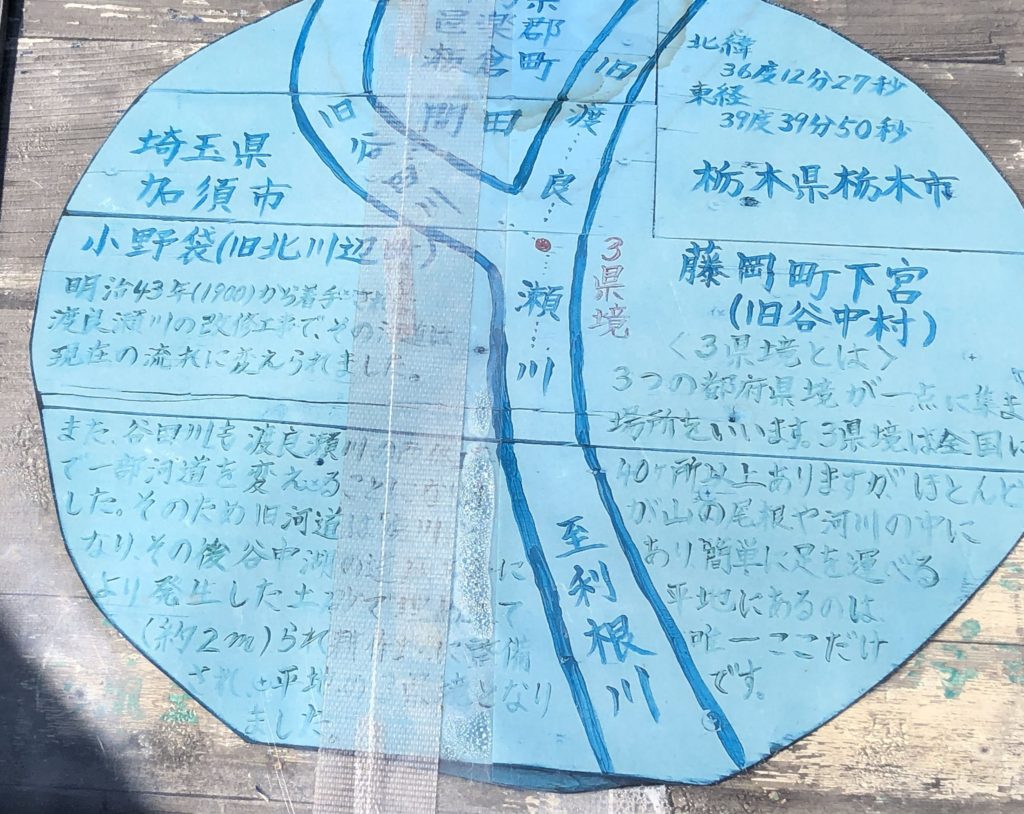 郡
倉町
間田
旧
渡
良
瀬
川
旧
谷
田
川
北緯
36度12分27秒
東経
39度39分50秒
埼玉県
加須市
栃木県栃木市
小野袋(旧北川辺
3県境
藤岡町下宮
(旧谷中村)
明治43年(1900)から着手され
渡良瀬川の改修工事で、その
現在の流れに変えられました。
〈3県境とは〉
3つの都府県境が一点に集ま
場所をいいます。3県境は全国に
40ヶ所以上ありますがほとんど
が山の尾根や河川の中に
あり簡単に足を運べる
平地にあるのは
唯一ここだけ
です。
また、谷田川も渡良瀬川
で一部河道を変えること
した。そのため旧河道は
なり、その後谷中湖の
より発生した土
(約2m)られ
され、平地 となり
ました。
至利根川